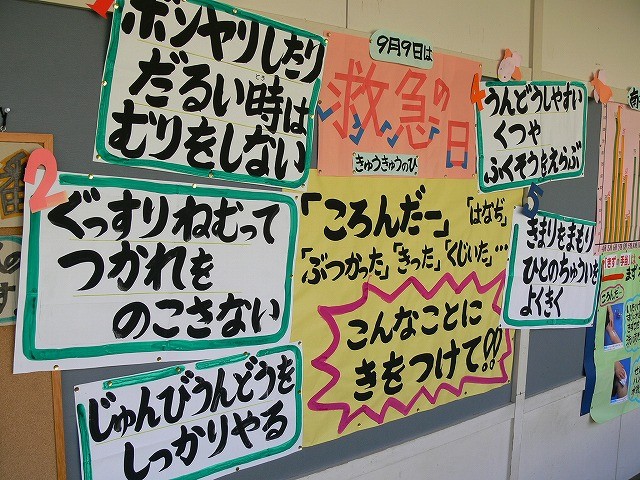 1
ボンヤリしたり
だるい時は
とき
むりをしない
9月9日は
救急の日
きゅうきゅうのひ
4
うんどうしやすい
くつや
ふくそうをえらぶ
2
ぐっすりねむって
つかれを
のこさない
「ころんだー」
「はなぢ」
「ぶつかった」「きった」「くじいた」…
こんなことに
きをつけて!!
5
きまりをまもり
ひとのちゅういを
よくきく
じゅんびうんどうを
しっかりやる
ころんだ